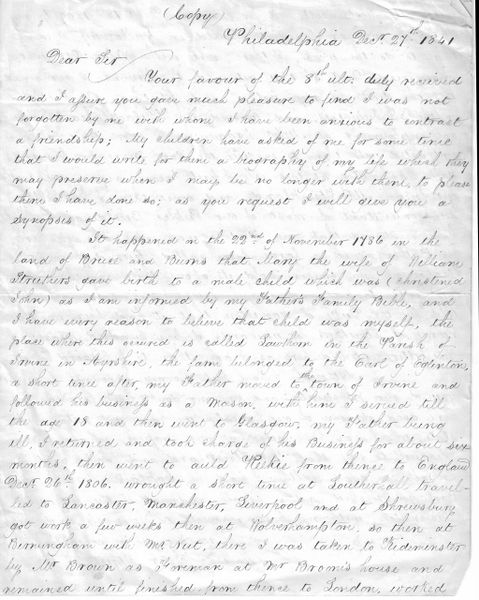 (Copy)
Philadelphia Decr 27th 1841
Dear Sir
Your favour of the 8th ult. duly received
and I assure you gave much pleasure to find I was not
forgotten by one with whom I have been anxious to contract
a friendship; My children have asked of me for some time
that I would write for them a biography of my life which they
may preserve when I may be no longer with them, to please
them I have done so; as you request I will give you a
Synopsis of it.
It happened on the 22nd of November 1786 in the
land of Bruce and Burns that Mary the wife of William
Struthers gave birth to a male child which was (christened
John) as I am informed by my Fathers Family Bible, and
I have every reason to believe that child was myself, the
place where this occured is called in the Parish of
Irvine in Ayrshire, the farm belonged to the Earl of Eglinton,
a short time after, my Father moved to the town of Irvine and
followed his business as a Mason, with him I served till
the age 18 and then went to Glasgow, my Father being
ill, I returned and took charge of his Business for about six
months, then went to auld from thence to England
Decr 26th 1806. wrought a short time at Southerhall travel-
led to Lancaster, Manchester, Liverpool and at Shrewsbury
got work a few weeks then at Wolverhampton. so then at
Birmingham with Mr there I was taken to Kidminster
by Mr Brown as Foreman at Mr house and
remained until finished, from thence to London, worked